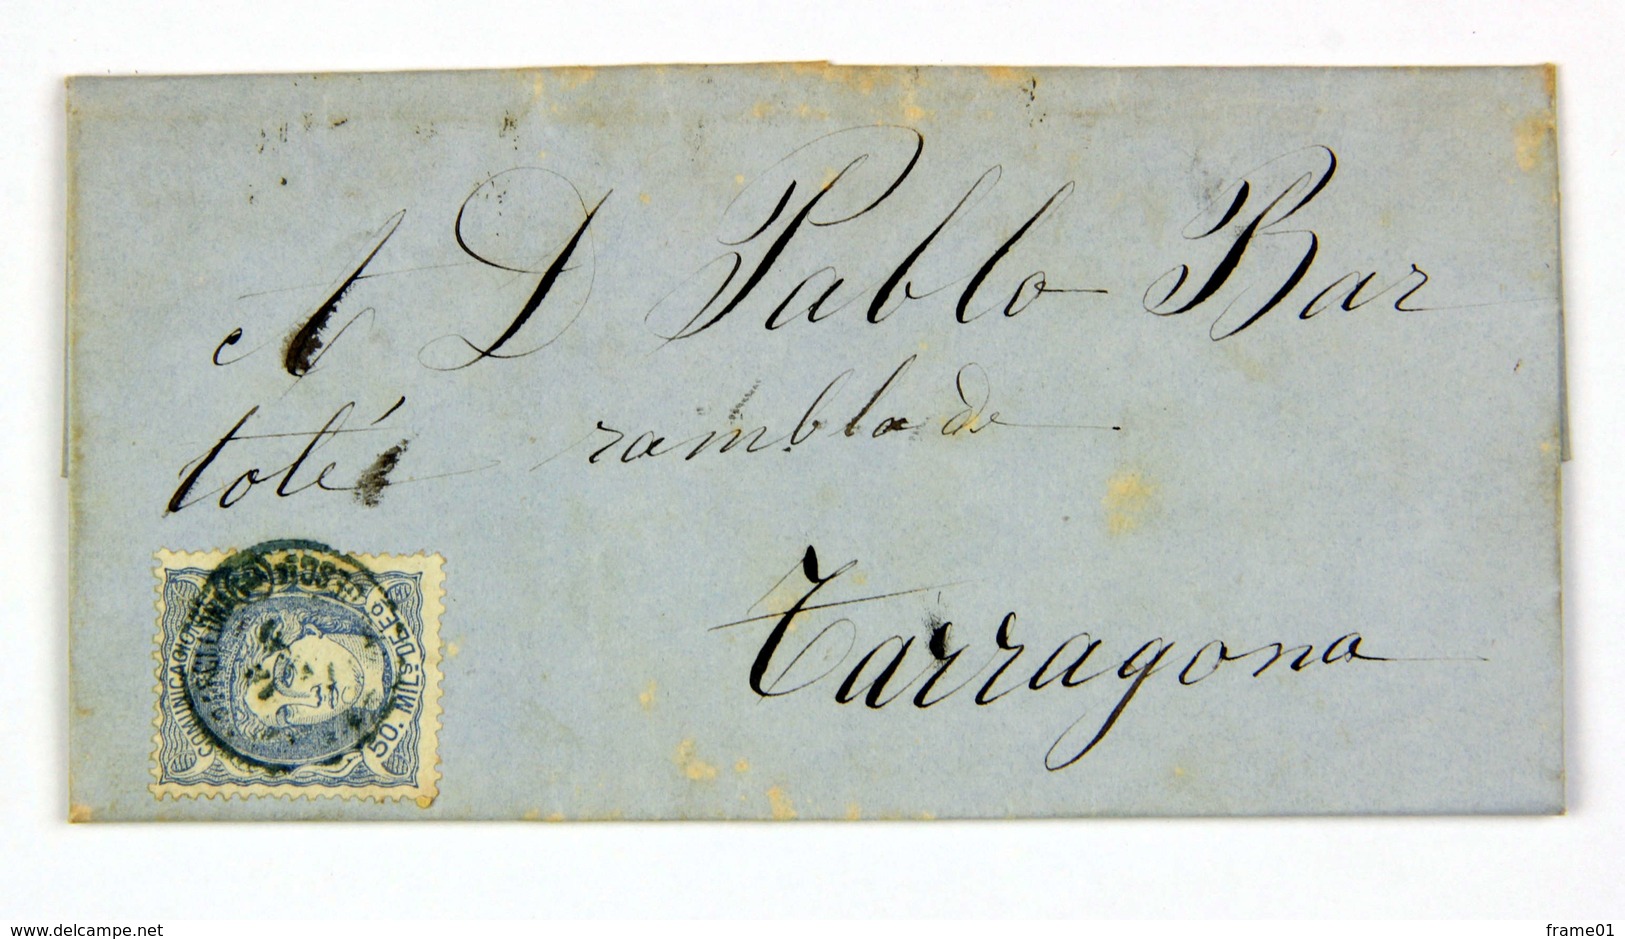 A D Pablo Bar
tolé rambla de
Tarragona
COMUNICACIONES
50. MILS. DE E.
delcampe.net
frame01